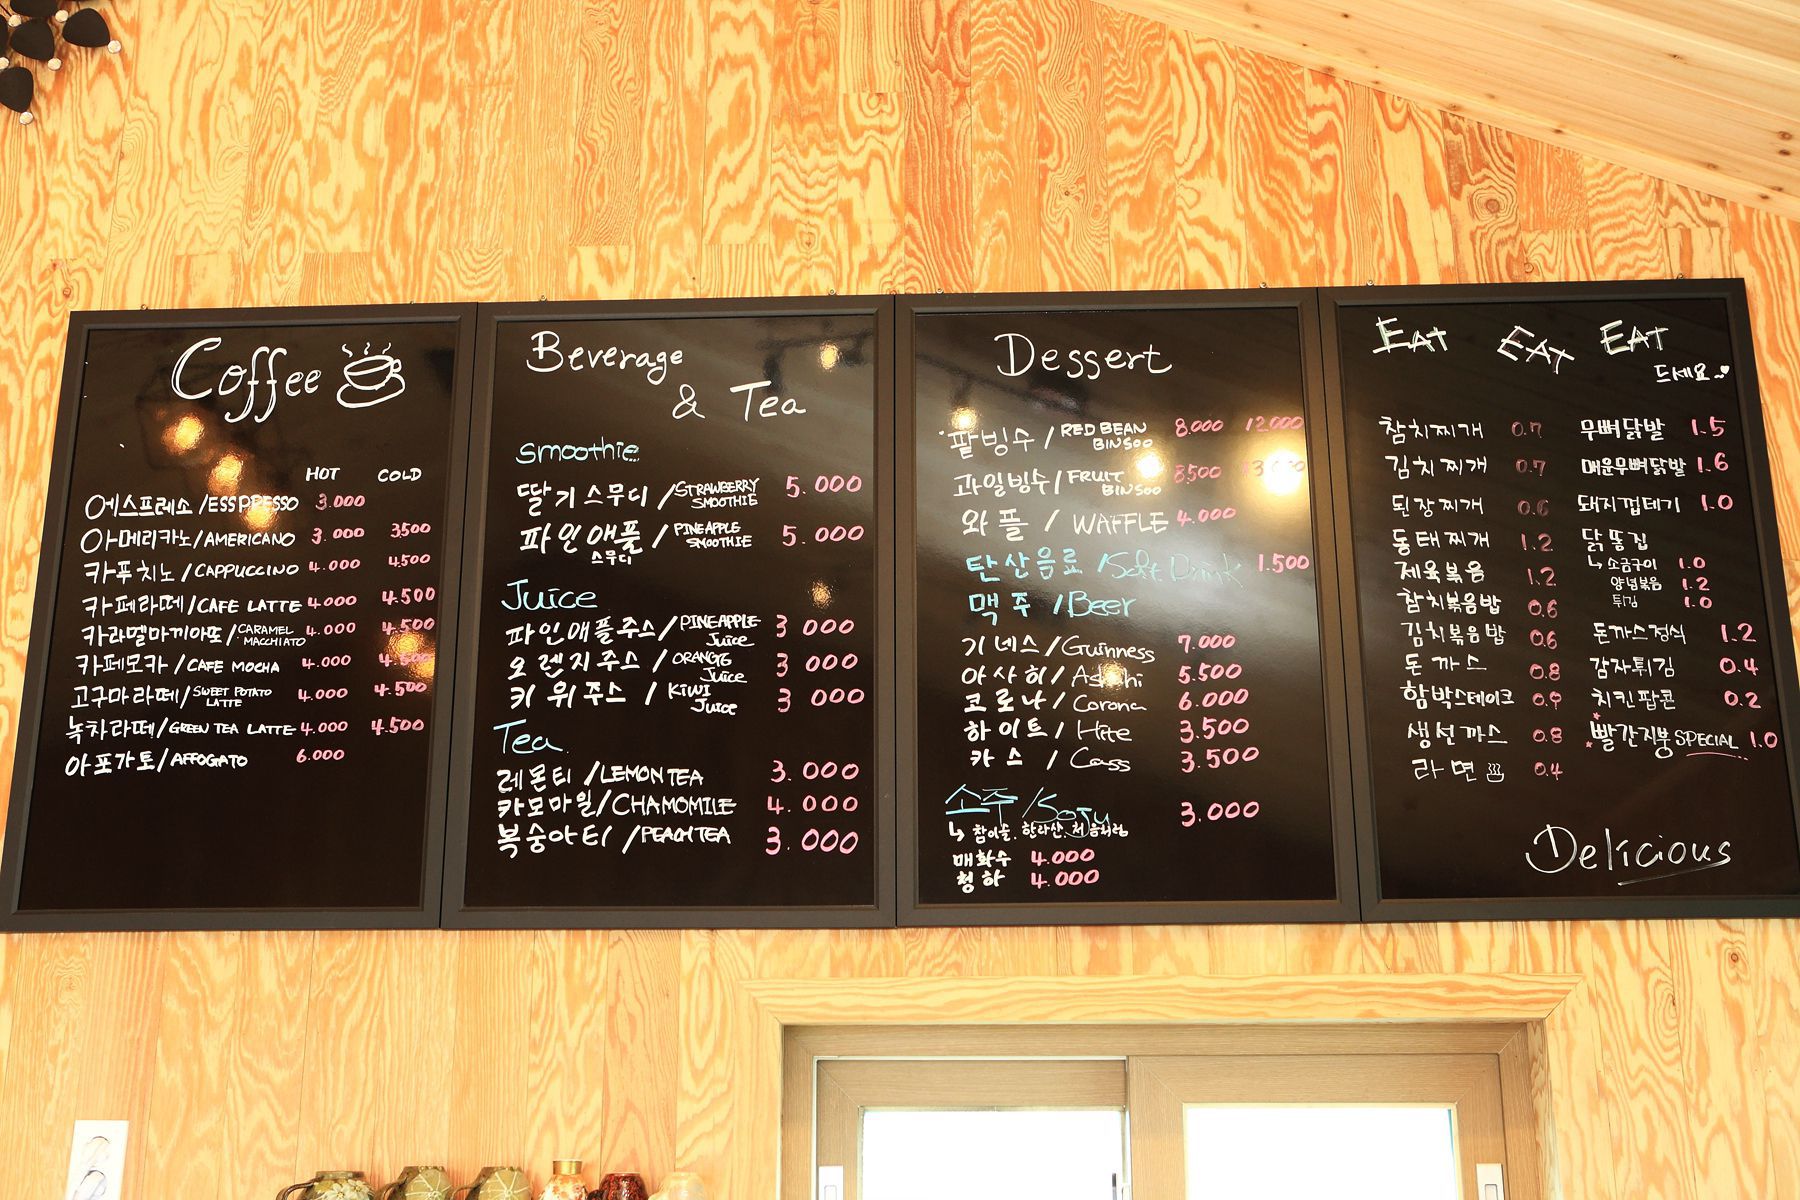 Coffee
HOT COLD
에스프레소/ESSPRESSO 3.000
아메리카노/AMERICANO 3.000 3500
카푸치노/CAPPUCCINO 4.000 4500
카페라떼/CAFE LATTE 4.000 4.500
카라멜마끼아또/CARAMEL MACCHIATO 4.000 4.500
카페모카/CAFE MOCHA 4.000 4.500
고구마라떼/SWEET POTATO LATTE 4.000 4.500
녹차라떼/GREEN TEA LATTE 4.000 4.500
아포가토/AFFOGATO 6.000
Beverage
& Tea
Smoothie
딸기스무디/STRAWBERRY SMOOTHIE 5.000
파인애플스무디/PINEAPPLE SMOOTHIE 5.000
Juice
파인애플주스/PINEAPPLE Juice 3000
오렌지주스/ORANGE Juice 3000
키위주스/KIWI Juice 3000
Tea
레몬티/LEMON TEA 3.000
카모마일/CHAMOMILE 4.000
복숭아티/PEACH TEA 3.000
Dessert
팥빙수/RED BEAN BINSOO 8.000 12.000
과일빙수/FRUIT BINSOO 8,500 13.000
와플/WAFFLE 4.000
탄산음료/Soft Drink 1.500
맥주/Beer
기네스/Guinness 7.000
아사히/Asahi 5.500
코로나/Corona 6.000
하이트/Hite 3.500
카스/Cass 3.500
소주/Soju 3.000
↳ 참이슬, 한라산, 처음처럼
매화수 4.000
청하 4.000
EAT EAT EAT
드세요~♥
참치찌개 0.7
김치찌개 0.7
된장찌개 0.6
동태찌개 1.2
제육볶음 1.2
참치볶음밥 0.6
김치볶음밥 0.6
돈까스 0.8
함박스테이크 0.9
생선까스 0.8
라면 0.4
무뼈닭발 1.5
매운무뼈닭발 1.6
돼지껍테기 1.0
닭똥집
↳ 소금구이 1.0
양념볶음 1.2
튀김 1.0
돈까스정식 1.2
감자튀김 0.4
치킨팝콘 0.2
빨간지붕 SPECIAL 1.0
Delicious